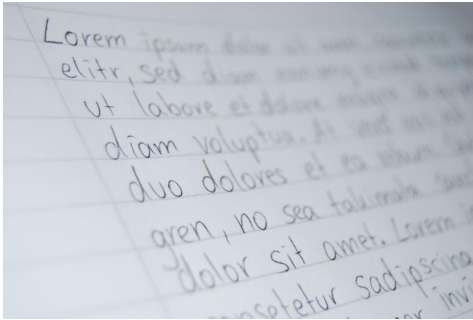 Lorem ipsum dolor sit amet
elitr, sed diam nonumy eirmod
ut labore et dolore magna
diam voluptua. At vero eos et
duo dolores et ea rebum.
gren, no sea takimata sanc
dolor sit amet. Lorem
consetetur sadipscing
invi